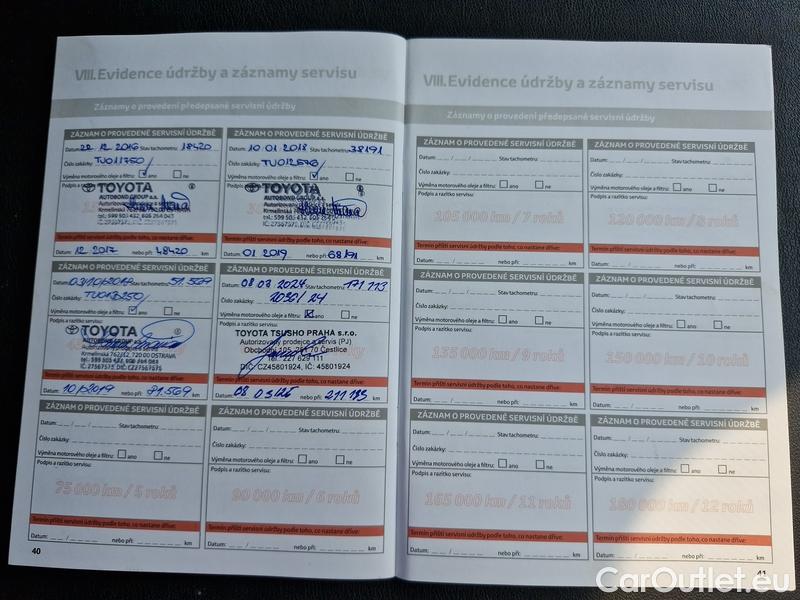 VIII. Evidence údržby a záznamy servisu
Záznamy o provedení předepsané servisní údržby
ZÁZNAM O PROVEDENÉ SERVISNÍ ÚDRŽBĚ
Datum: 22 12 2016 Stav tachometru: 18420
Číslo zakázky: TU011750
Výměna motorového oleje a filtru: ano ne
Podpis a
TOYOTA
AUTOBOND GROUP a.s.
Termín příští servisní údržby podle toho, co nastane dříve:
Datum: 12 2017 nebo při: 48420 km
ZÁZNAM O PROVEDENÉ SERVISNÍ ÚDRŽBĚ
Datum: 10 01 2018 Stav tachometru: 38191
Číslo zakázky: TU012576
Výměna motorového oleje a filtru: ano ne
Podpis a
TOYOTA
AUTOBOND GROUP a.s.
Termín příští servisní údržby podle toho, co nastane dříve:
Datum: 01 2019 nebo při: 68191 km
ZÁZNAM O PROVEDENÉ SERVISNÍ ÚDRŽBĚ
Stav tachometru: 51.569
Číslo zakázky:
Výměna motorového oleje a filtru: ano ne
Podpis a razítko servisu:
TOYOTA
Krmelínská 762/12, 720 00 OSTRAVA
tel.: 599 503 437, 606 764 043
IČ: 27567575, DIČ: CZ27567575
Termín příští servisní údržby podle toho, co nastane dříve:
Datum: 10/2019 nebo při: 71.569 km
ZÁZNAM O PROVEDENÉ SERVISNÍ ÚDRŽBĚ
Datum: 08 03 2024 Stav tachometru: 171 113
Číslo zakázky: 2030/24
Výměna motorového oleje a filtru: ano ne
Podpis a razítko servisu:
TOYOTA TSUSHO PRAHA s.r.o.
Autorizovaný prodejce a servis (PJ)
Obchodní 105, 251 70 Čestlice
Tel.: 227 629 111
DIČ: CZ45801924, IČ: 45801924
Termín příští servisní údržby podle toho, co nastane dříve:
Datum: 08 03/26 nebo při: km
ZÁZNAM O PROVEDENÉ SERVISNÍ ÚDRŽBĚ
Datum: __ / __ / ____ Stav tachometru:
Číslo zakázky:
Výměna motorového oleje a filtru: ano ne
Podpis a razítko servisu:
75 000 km / 5 roků
Termín příští servisní údržby podle toho, co nastane dříve:
Datum: nebo při: km
ZÁZNAM O PROVEDENÉ SERVISNÍ ÚDRŽBĚ
Datum: __ / __ / ____ Stav tachometru:
Číslo zakázky:
Výměna motorového oleje a filtru: ano ne
Podpis a razítko servisu:
90 000 km / 6 roků
Termín příští servisní údržby podle toho, co nastane dříve:
Datum: nebo při: km
40
VIII. Evidence údržby a záznamy servisu
Záznamy o provedení předepsané servisní údržby
ZÁZNAM O PROVEDENÉ SERVISNÍ ÚDRŽBĚ
Datum: __ / __ / ____ Stav tachometru:
Číslo zakázky:
Výměna motorového oleje a filtru: ano ne
Podpis a razítko servisu:
105 000 km / 7 roků
Termín příští servisní údržby podle toho, co nastane dříve:
Datum: nebo při: km
ZÁZNAM O PROVEDENÉ SERVISNÍ ÚDRŽBĚ
Datum: __ / __ / ____ Stav tachometru:
Číslo zakázky:
Výměna motorového oleje a filtru: ano ne
Podpis a razítko servisu:
120 000 km / 8 roků
Termín příští servisní údržby podle toho, co nastane dříve:
Datum: nebo při: km
ZÁZNAM O PROVEDENÉ SERVISNÍ ÚDRŽBĚ
Datum: __ / __ / ____ Stav tachometru:
Číslo zakázky:
Výměna motorového oleje a filtru: ano ne
Podpis a razítko servisu:
135 000 km / 9 roků
Termín příští servisní údržby podle toho, co nastane dříve:
Datum: nebo při: km
ZÁZNAM O PROVEDENÉ SERVISNÍ ÚDRŽBĚ
Datum: __ / __ / ____ Stav tachometru:
Číslo zakázky:
Výměna motorového oleje a filtru: ano ne
Podpis a razítko servisu:
150 000 km / 10 roků
Termín příští servisní údržby podle toho, co nastane dříve:
Datum: nebo při: km
ZÁZNAM O PROVEDENÉ SERVISNÍ ÚDRŽBĚ
Datum: __ / __ / ____ Stav tachometru:
Číslo zakázky:
Výměna motorového oleje a filtru: ano ne
Podpis a razítko servisu:
165 000 km / 11 roků
Termín příští servisní údržby podle toho, co nastane dříve:
Datum: nebo při: km
ZÁZNAM O PROVEDENÉ SERVISNÍ ÚDRŽBĚ
Datum: __ / __ / ____ Stav tachometru:
Číslo zakázky:
Výměna motorového oleje a filtru: ano ne
Podpis a razítko servisu:
180 000 km / 12 roků
Termín příští servisní údržby podle toho, co nastane dříve:
Datum: nebo při: km
41
CarOutlet.eu